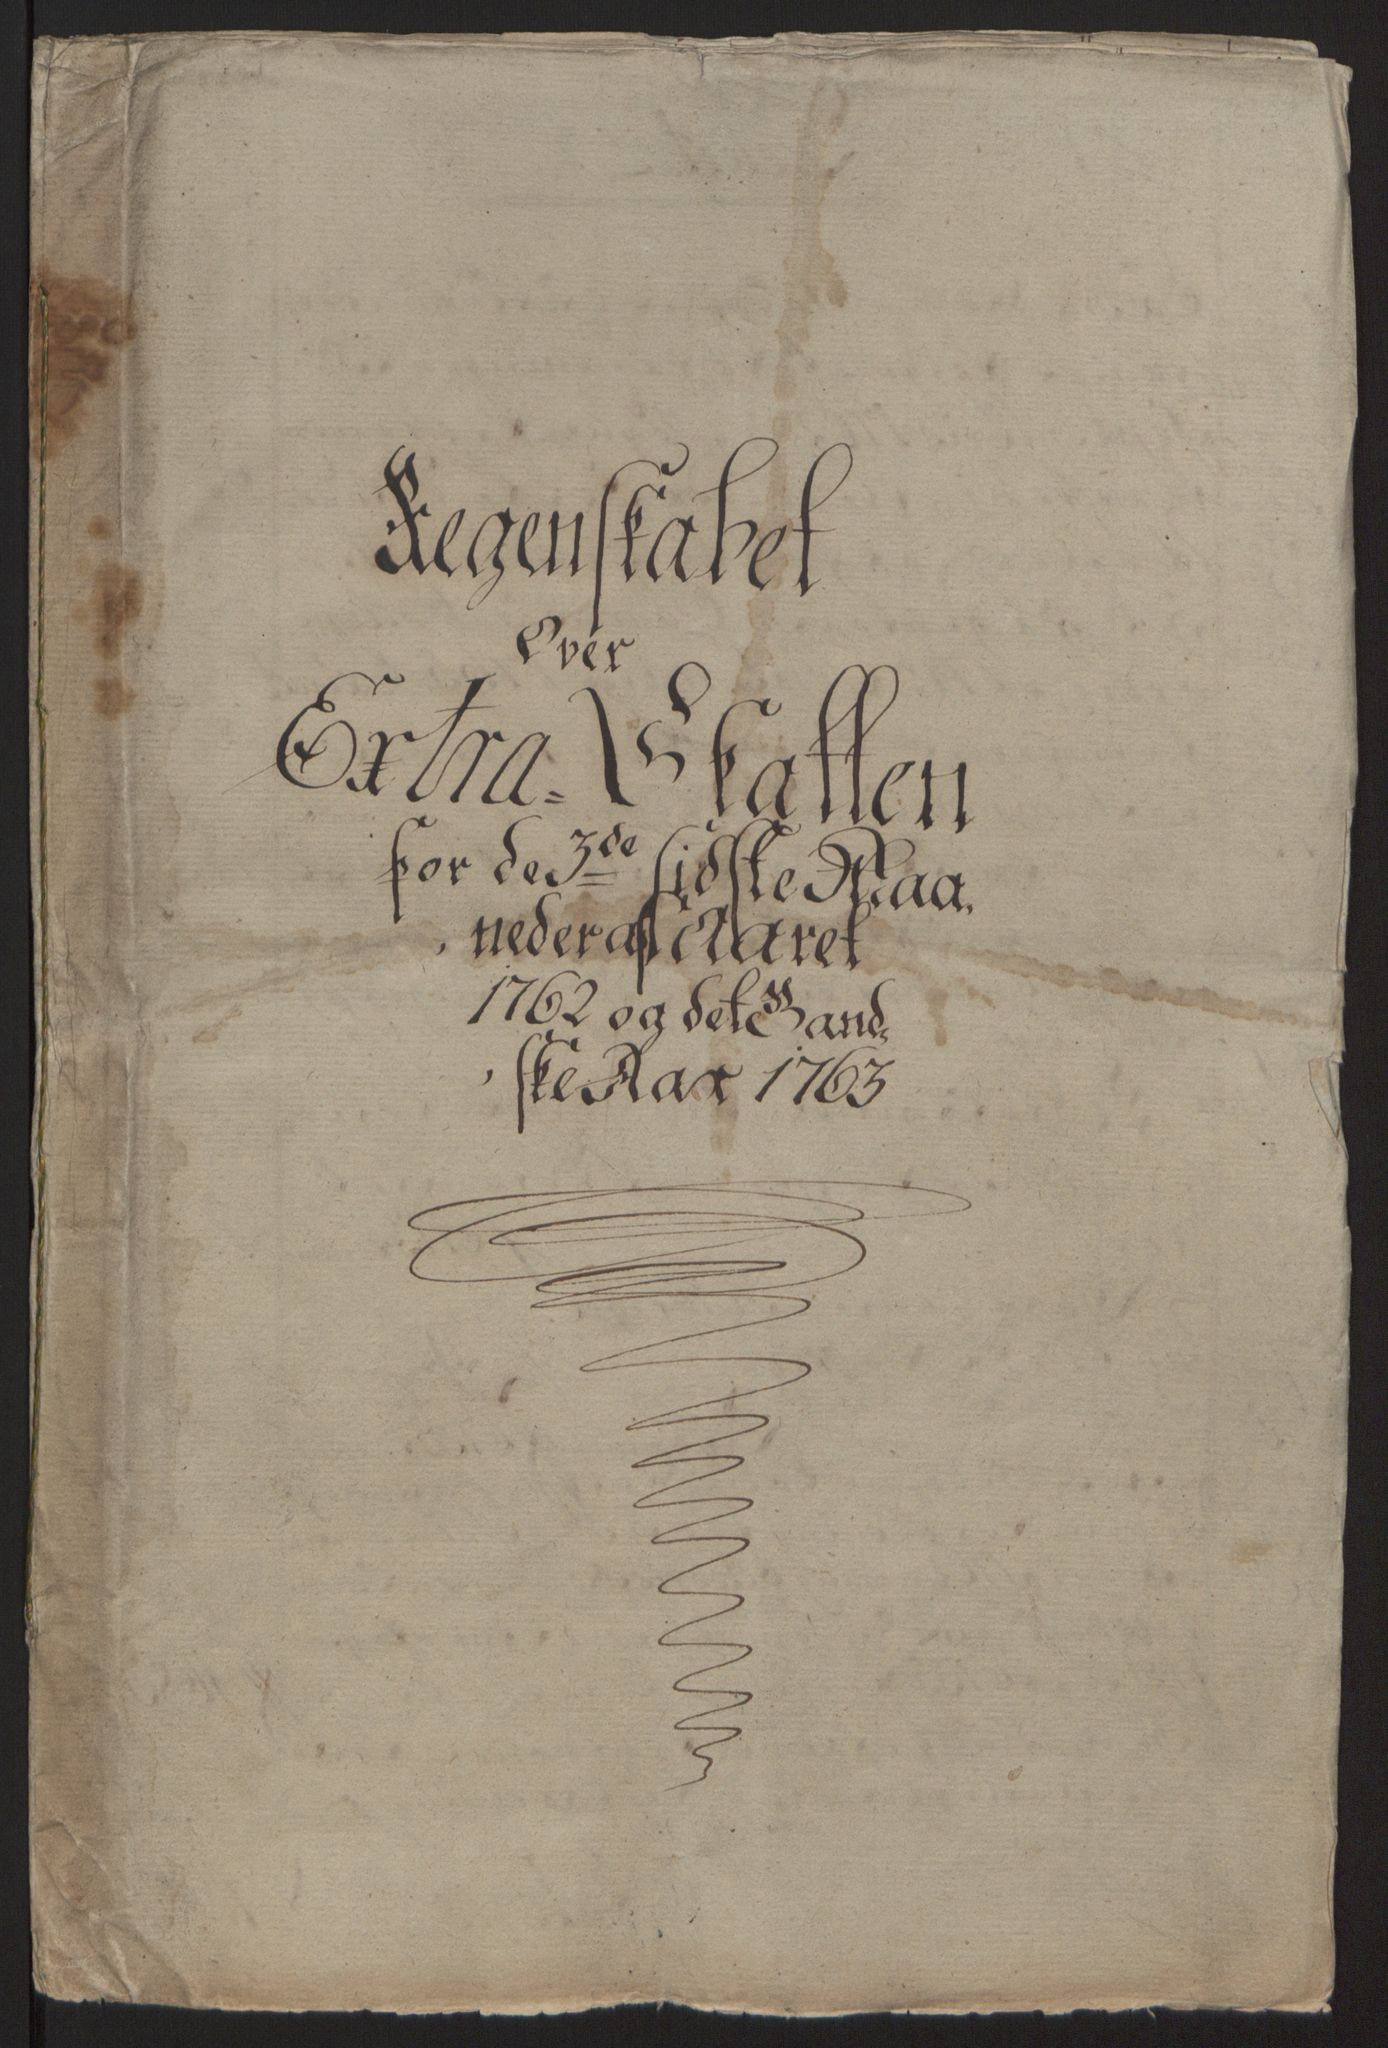 Regenskabet
Over
Extra-Skatten
for de 3de sidste Maa-
neder af Aaret
1762 og det gand-
ske Aar 1763